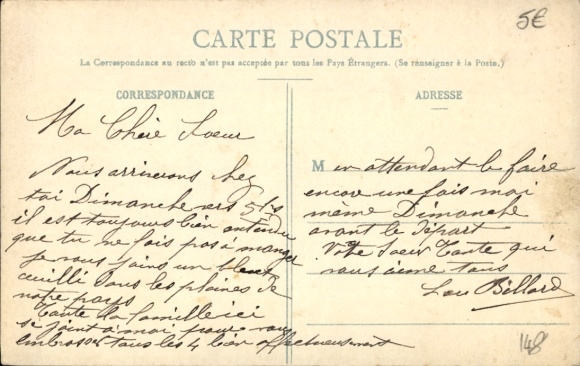 5€
CARTE POSTALE
La Correspondance au recto n'est pas acceptée par tous les Pays Étrangers. (Se renseigner à la Poste.)
CORRESPONDANCE
Ma Chère Soeur
Nous arriverons chez
toi Dimanche vers 5 h ½
il est toujours bien entendu
que tu ne fais pas à manger
je vous joins un bleuet
cueilli dans les plaines de
notre pays
Toute la famille ici
se joint à moi pour vous
embrasser tous les 4 bien affectueusement
ADRESSE
M en attendant le faire
encore une fois moi
même Dimanche
avant le départ
Votre Soeur Tante qui
vous aime tous
Billard
148